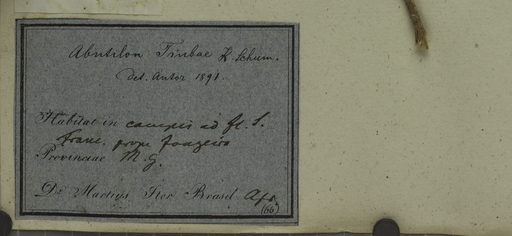 Abutilon Tiubae K. Schum.
det. Autor 1891.
Habitat in campis ad fl. S.
Franc. prope Joazeiro
Provinciae M. G.
Dr. Martius Iter Brasil Apr.
(66)